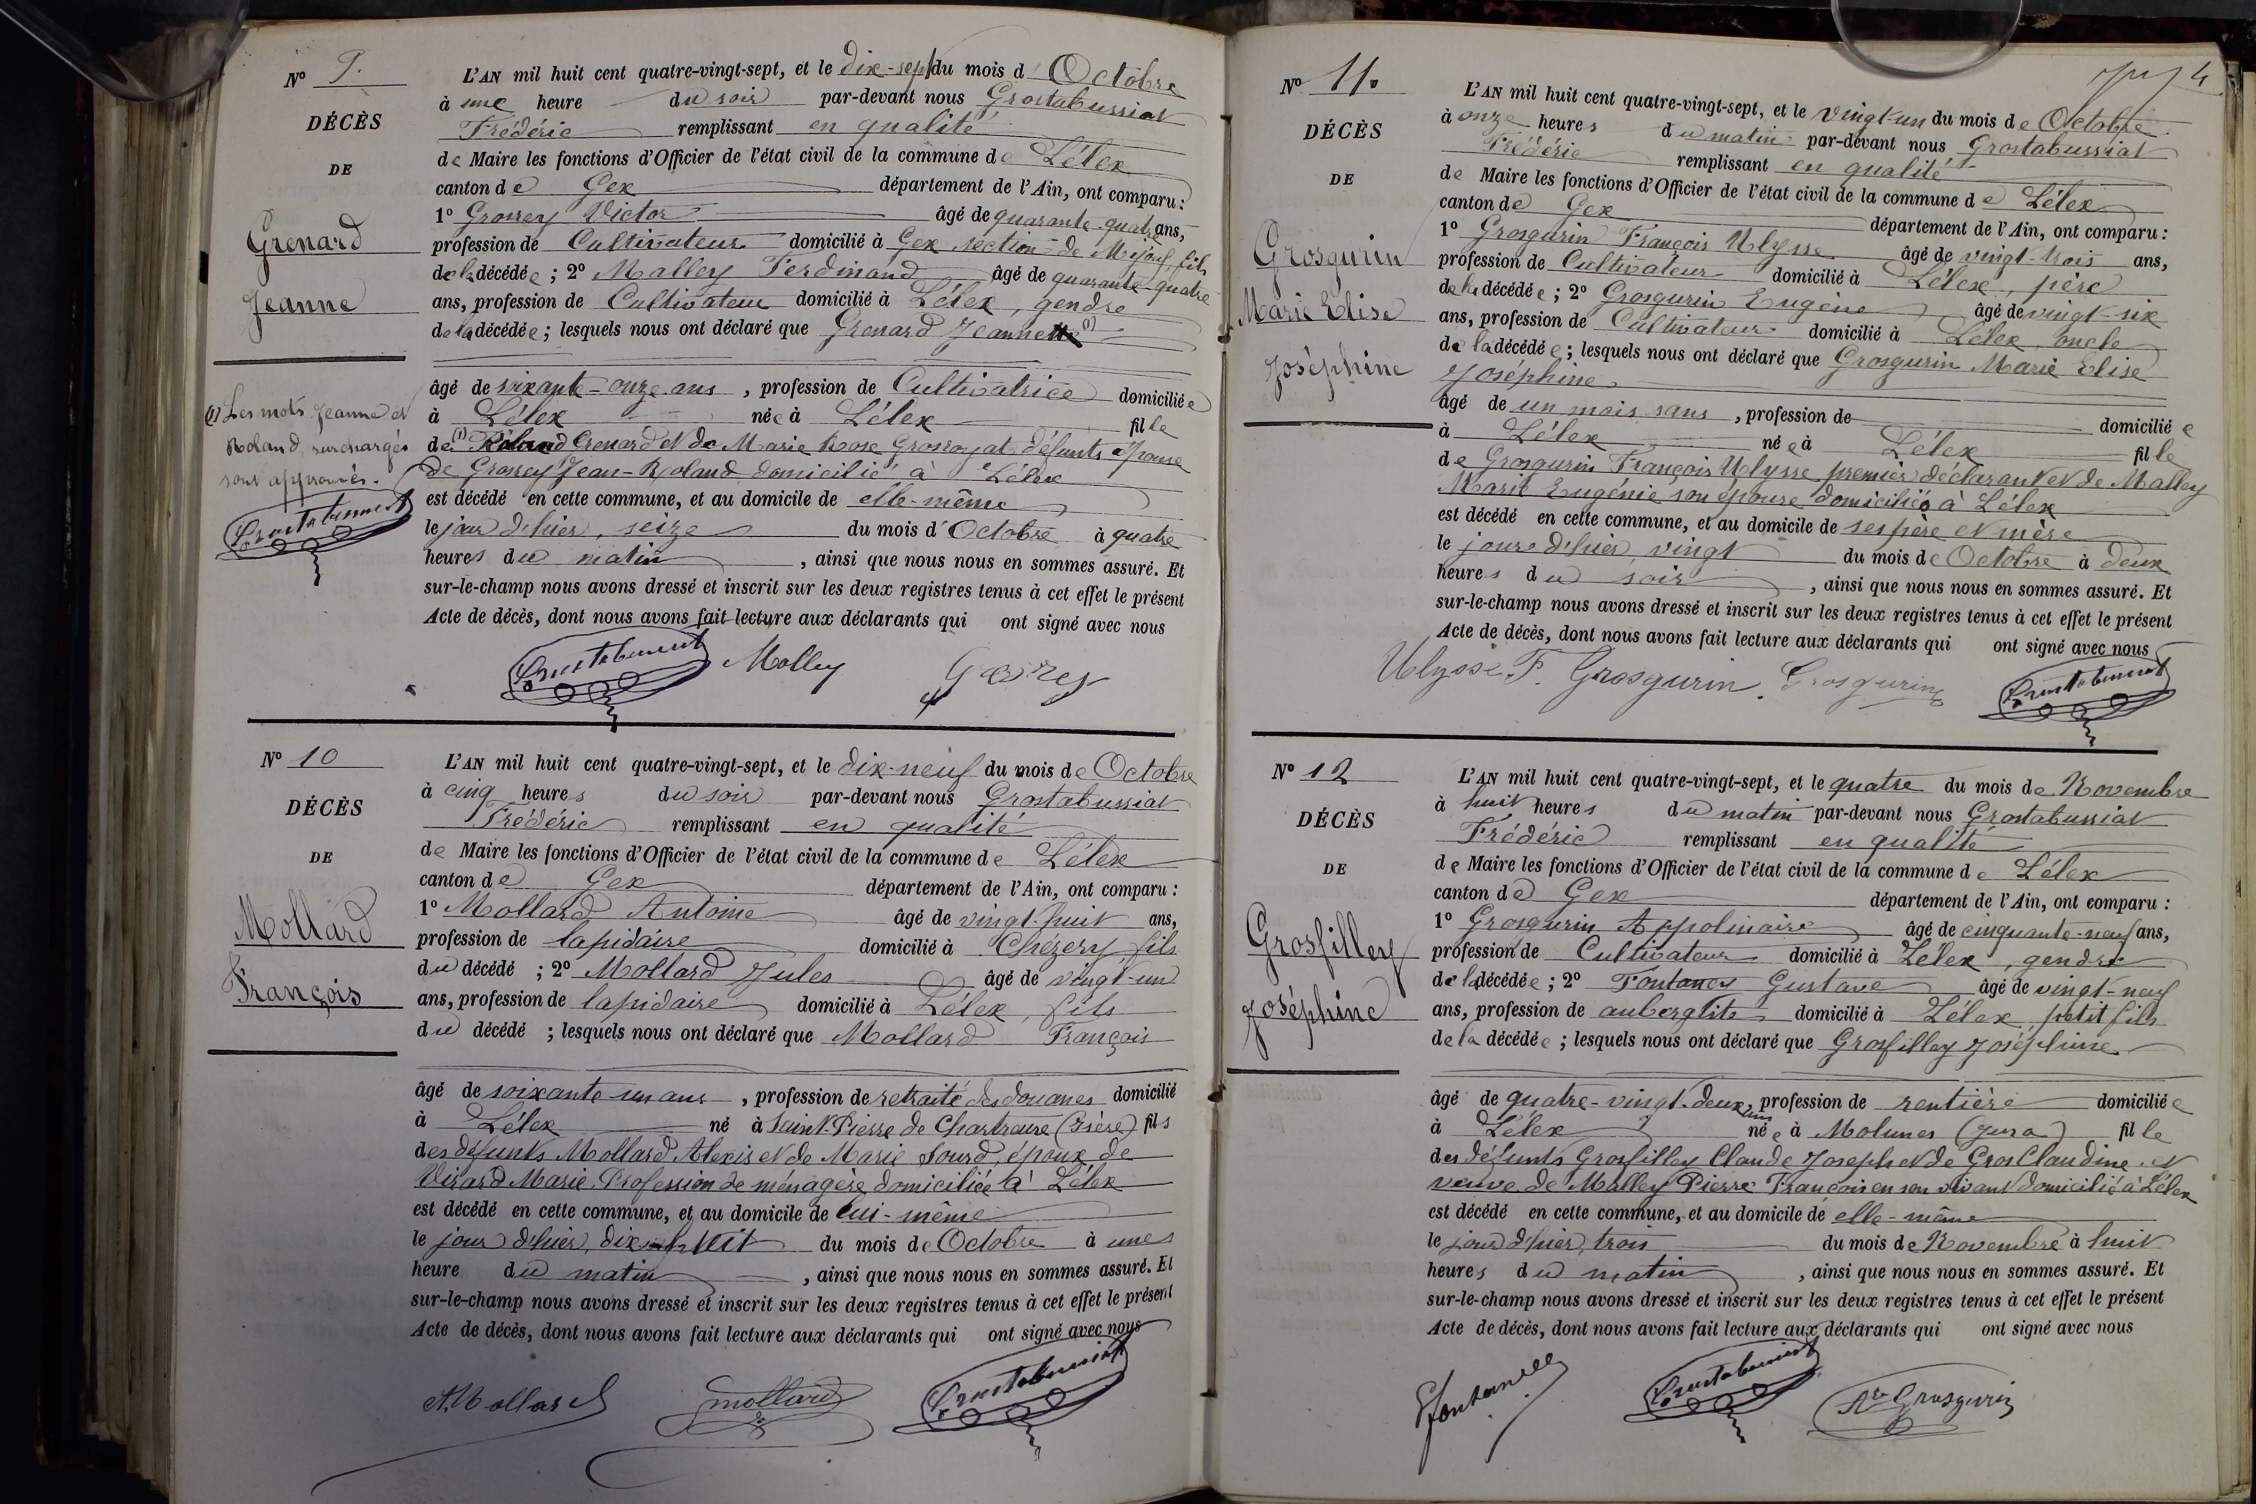 N° 9.
DÉCÈS
DE
Grenard
Jeanne
L'AN mil huit cent quatre-vingt-sept, et le dix-sept du mois d'Octobre
à une heure du soir par-devant nous Grostabussiat
Frédéric remplissant en qualité
de Maire les fonctions d'Officier de l'état civil de la commune de Lélex
canton de Gex département de l'Ain, ont comparu :
1° Grossey Victor âgé de quarante-quatre ans,
profession de Cultivateur domicilié à Gex section de Mijoux fils
de la décédée ; 2° Malley Ferdinand âgé de quarante quatre
ans, profession de Cultivateur domicilié à Lélex, gendre
de la décédée ; lesquels nous ont déclaré que Grenard Jeanne (1)
âgé de soixante-onze ans, profession de Cultivatrice domiciliée
à Lélex née à Lélex fille
de (1) Roland Grenard et de Marie Rose Grossoyat défunts épouse
de Grossey Jean-Roland domicilié à Lélex
est décédé en cette commune, et au domicile de elle-même
le jour d'hier, seize du mois d'Octobre à quatre
heures du matin, ainsi que nous nous en sommes assuré. Et
sur-le-champ nous avons dressé et inscrit sur les deux registres tenus à cet effet le présent
Acte de décès, dont nous avons fait lecture aux déclarants qui ont signé avec nous
(1) Les mots Jeanne et
Roland, surchargés
sont approuvés.
Grostabussiat
Grostabussiat Molley
N° 10
DÉCÈS
DE
Mollard
François
L'AN mil huit cent quatre-vingt-sept, et le dix-neuf du mois de Octobre
à cinq heures du soir par-devant nous Grostabussiat
Frédéric remplissant en qualité
de Maire les fonctions d'Officier de l'état civil de la commune de Lélex
canton de Gex département de l'Ain, ont comparu :
1° Mollard Antoine âgé de vingt-huit ans,
profession de lapidaire domicilié à Chézery, fils
du décédé ; 2° Mollard Jules âgé de vingt-un
ans, profession de lapidaire domicilié à Lélex, fils
du décédé ; lesquels nous ont déclaré que Mollard François
âgé de soixante-un ans, profession de retraité des douanes domicilié
à Lélex né à Saint-Pierre de Chartreuse (Isère) fils
des défunts Mollard Alexis et de Marie Sourd, époux de
Virard Marie. Profession de ménagère domiciliée à Lélex
est décédé en cette commune, et au domicile de lui-même
le jour d'hier, dix-huit du mois de Octobre à une
heure du matin, ainsi que nous nous en sommes assuré. Et
sur-le-champ nous avons dressé et inscrit sur les deux registres tenus à cet effet le présent
Acte de décès, dont nous avons fait lecture aux déclarants qui ont signé avec nous
A. Mollard mollard Grostabussiat
4
N° 11.
DÉCÈS
DE
Grosgurin
Marie Elise
Joséphine
L'AN mil huit cent quatre-vingt-sept, et le vingt-un du mois de Octobre
à onze heures du matin par-devant nous Grostabussiat
Frédéric remplissant en qualité
de Maire les fonctions d'Officier de l'état civil de la commune de Lélex
canton de Gex département de l'Ain, ont comparu :
1° Grosgurin François Ulysse âgé de vingt-trois ans,
profession de Cultivateur domicilié à Lélex, père
de la décédée ; 2° Grosgurin Eugène âgé de vingt-six
ans, profession de Cultivateur domicilié à Lélex, oncle
de la décédée ; lesquels nous ont déclaré que Grosgurin Marie Elise
Joséphine
âgé de un mois sans, profession de domiciliée
à Lélex née à Lélex fille
de Grosgurin François Ulysse premier déclarant et de Malley
Marie Eugénie son épouse domiciliés à Lélex
est décédé en cette commune, et au domicile de ses père et mère
le jour d'hier vingt du mois de Octobre à deux
heures du soir, ainsi que nous nous en sommes assuré. Et
sur-le-champ nous avons dressé et inscrit sur les deux registres tenus à cet effet le présent
Acte de décès, dont nous avons fait lecture aux déclarants qui ont signé avec nous
Ulysse F. Grosgurin. Grosgurin Grostabussiat
N° 12
DÉCÈS
DE
Grosfilley
Joséphine
L'AN mil huit cent quatre-vingt-sept, et le quatre du mois de Novembre
à huit heures du matin par-devant nous Grostabussiat
Frédéric remplissant en qualité
de Maire les fonctions d'Officier de l'état civil de la commune de Lélex
canton de Gex département de l'Ain, ont comparu :
1° Grosgurin Appolinaire âgé de cinquante-neuf ans,
profession de Cultivateur domicilié à Lélex, gendre
de la décédée ; 2° Fontanes Gustave âgé de vingt-neuf
ans, profession de aubergiste domicilié à Lélex petit fils
de la décédée ; lesquels nous ont déclaré que Grosfilley Joséphine
âgé de quatre-vingt-deux ans profession de rentière domiciliée
à Lélex née à Molunes (Jura) fille
des défunts Grosfilley Claude Joseph et de Gros Claudine et
veuve de Malley Pierre François en son vivant domicilié à Lélex
est décédé en cette commune, et au domicile de elle-même
le jour d'hier, trois du mois de Novembre à huit
heures du matin, ainsi que nous nous en sommes assuré. Et
sur-le-champ nous avons dressé et inscrit sur les deux registres tenus à cet effet le présent
Acte de décès, dont nous avons fait lecture aux déclarants qui ont signé avec nous
Grostabussiat Grosgurin